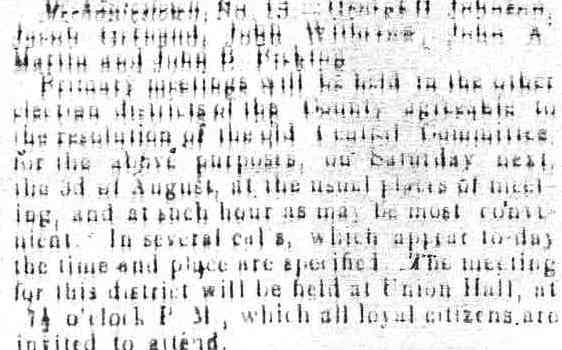 Mechanicstown, No. 15 — George H Johnson,
Jacob Firestone, John Wilhide, John A
Martin and John P. Picking
Primary meetings will be held in the other
election districts of the County agreeable to
the resolution of the old Central Committee
for the above purposes, on Saturday next,
the 3d of August, at the usual places of meet-
ing, and at such hour as may be most conve-
nient. In several calls, which appear to-day
the time and place are specified The meeting
for this district will be held at Union Hall, at
7½ o'clock P M, which all loyal citizens are
invited to attend.